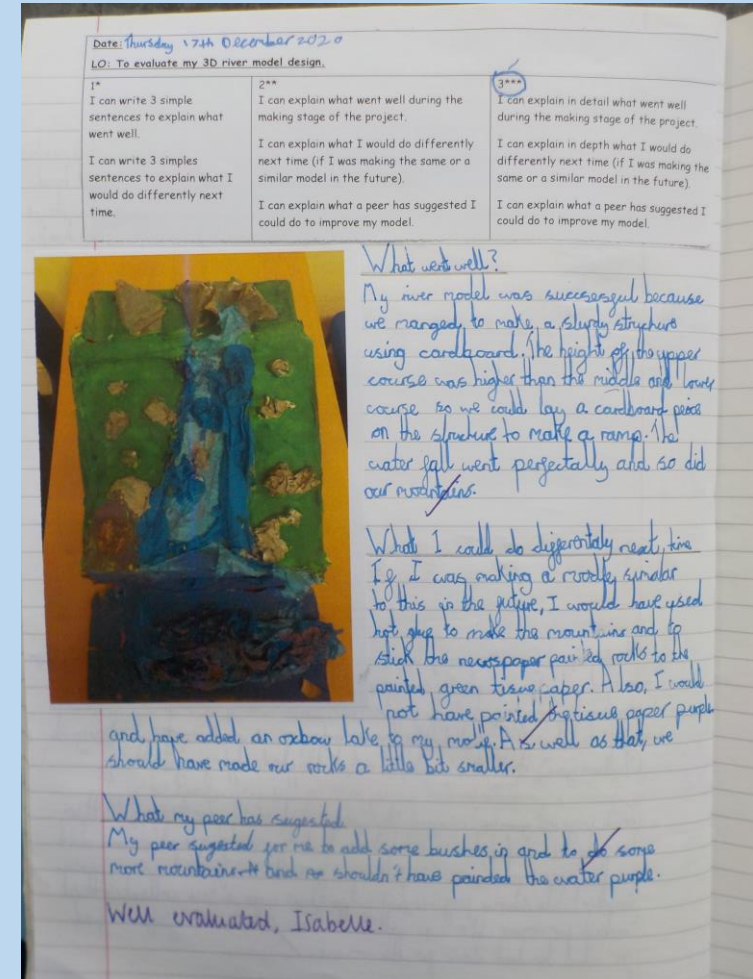 Date: Thursday 17th December 2020
LO: To evaluate my 3D river model design.
1*
I can write 3 simple
sentences to explain what
went well.
I can write 3 simples
sentences to explain what I
would do differently next
time.
2**
I can explain what went well during the
making stage of the project.
I can explain what I would do differently
next time (if I was making the same or a
similar model in the future).
I can explain what a peer has suggested I
could do to improve my model.
3***
I can explain in detail what went well
during the making stage of the project.
I can explain in depth what I would do
differently next time (if I was making the
same or a similar model in the future).
I can explain what a peer has suggested I
could do to improve my model.
What went well?
My river model was succsesgul because
we manged to make a sturdy structure
using cardboard. The height of the upper
course was higher than the middle and lower
course so we could lay a cardboard peice
on the structure to make a ramp. The
water fall went perfectally and so did
our mountains.
What I could do differentaly next time
If I was making a modle simalar
to this in the future, I would have used
hot glue to make the mountains and to
stick the newspaper painted rocks to the
painted green tissue paper. Also, I would
not have painted the tissue paper purple
and have added an oxbow lake to my modle. As well as that, we
should have made our rocks a little bit smaller.
What my peer has sugested
My peer sugested for me to add some bushes in and to do some
more mountains and shouldn't have painded the water purple.
Well evaluated, Isabelle.